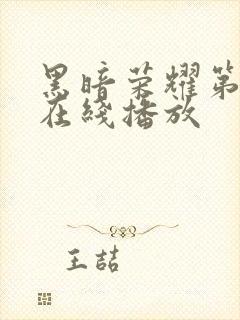 黑暗荣耀第
在线播放
王喆